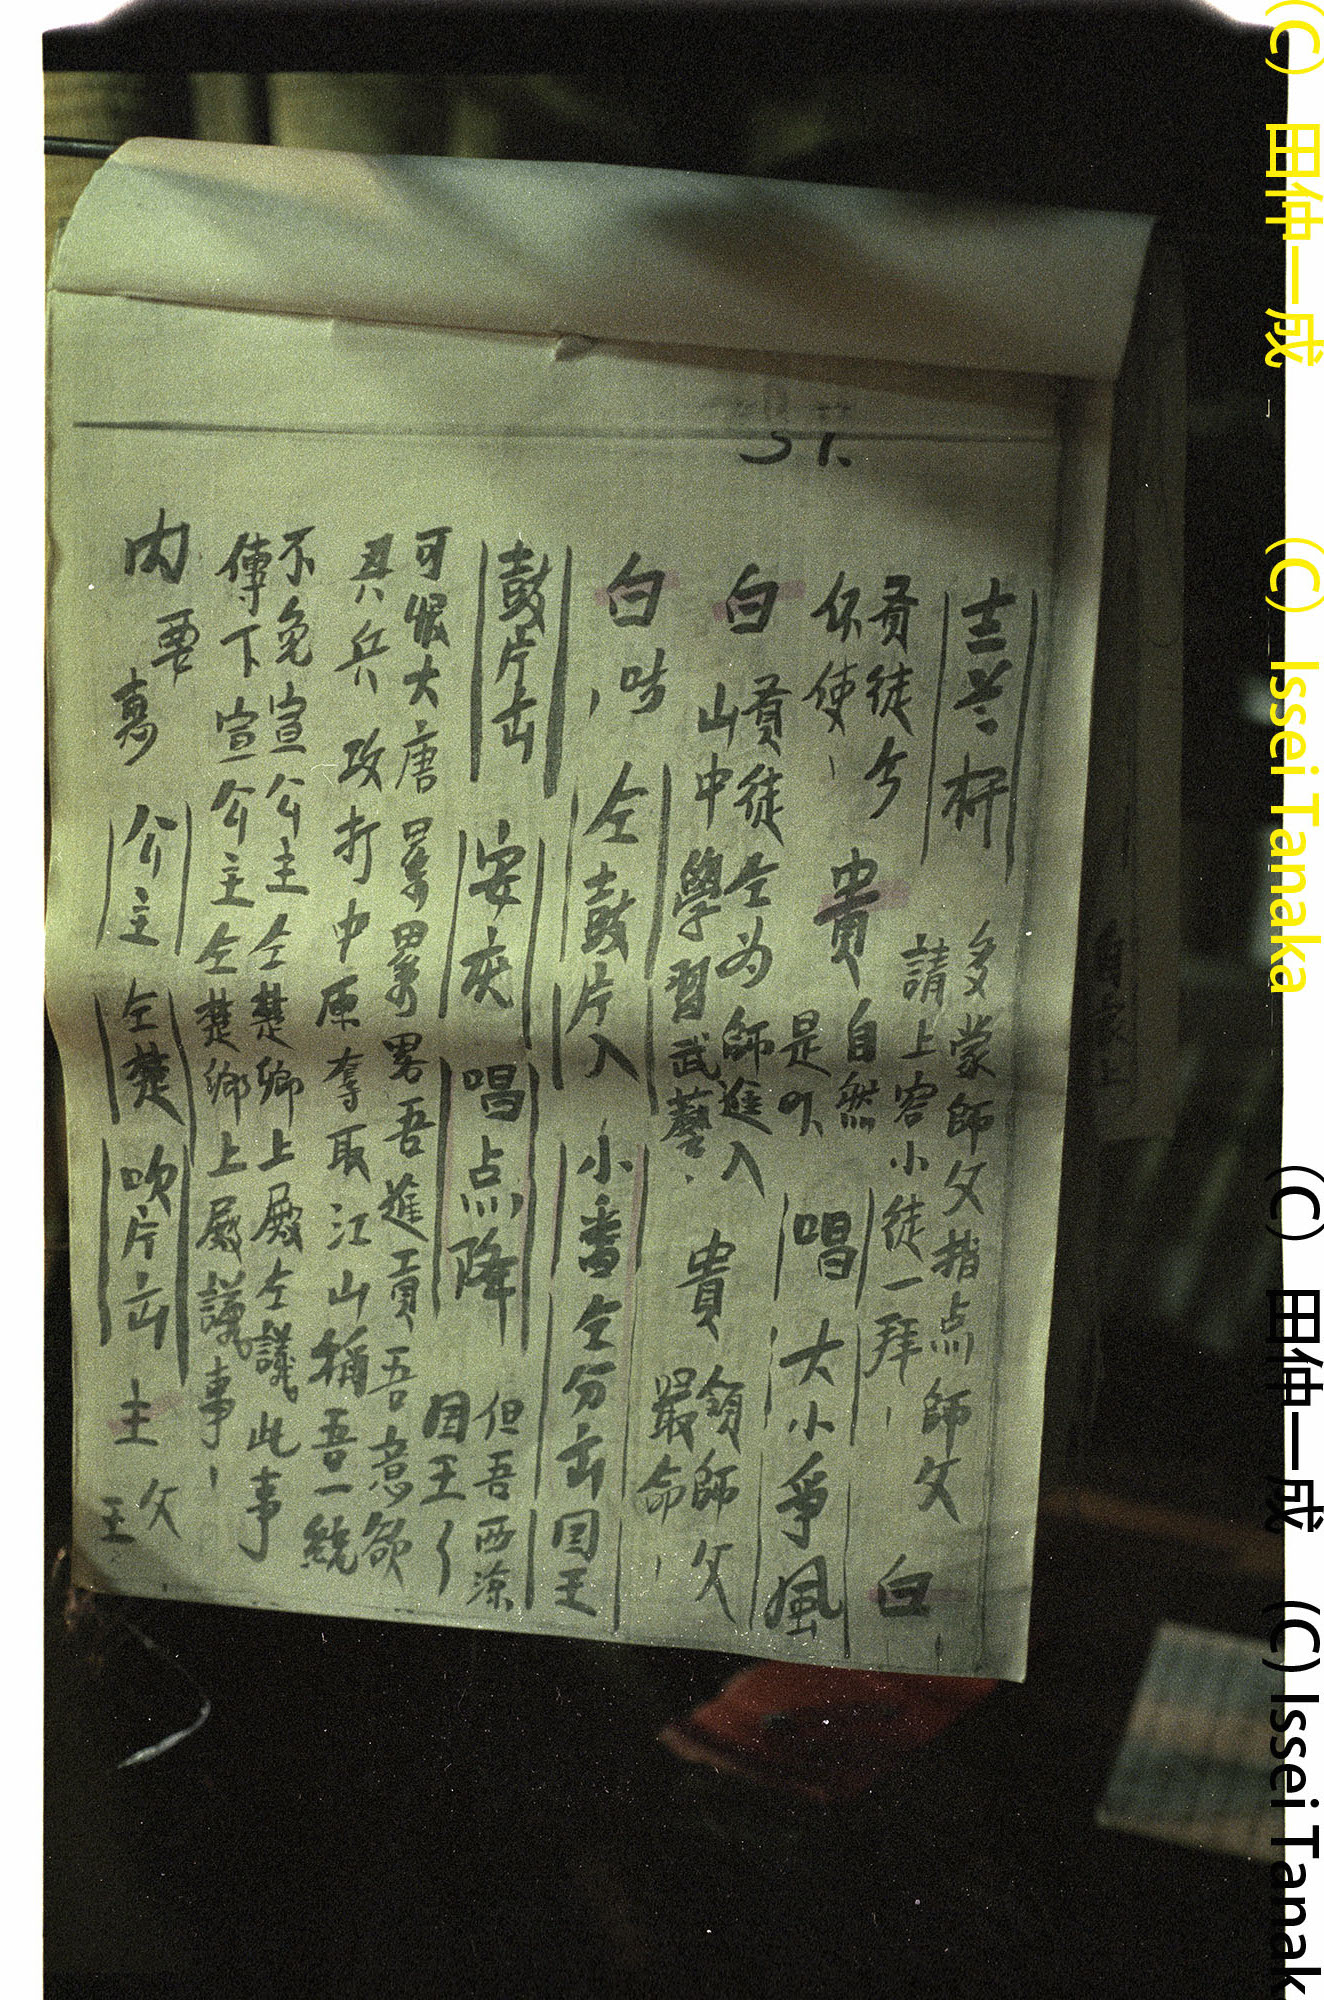 多蒙師父指点師父
請上容小徒一拜
白
貴徒兮
你使
貴
自然
是以
唱
大小爭風
白
貴徒仝為師進入
山中學習武藝
貴
領師父
嚴命
白
仝鼓片入
小番仝分出国王
鼓片出
安夾
唱点降
但吾西涼
国王
可恨大唐累累畧吾進貢吾意欲
兵攻打中原奪取江山稱吾一統
不免宣公主仝楚卿上殿仝議此事
傳下宣公主仝楚卿上殿議事
内
要
公主
仝楚
吹片出
主
父
王
(C) 田仲一成 (C) Issei Tanaka
(C) 田仲一成 (C) Issei Tanak